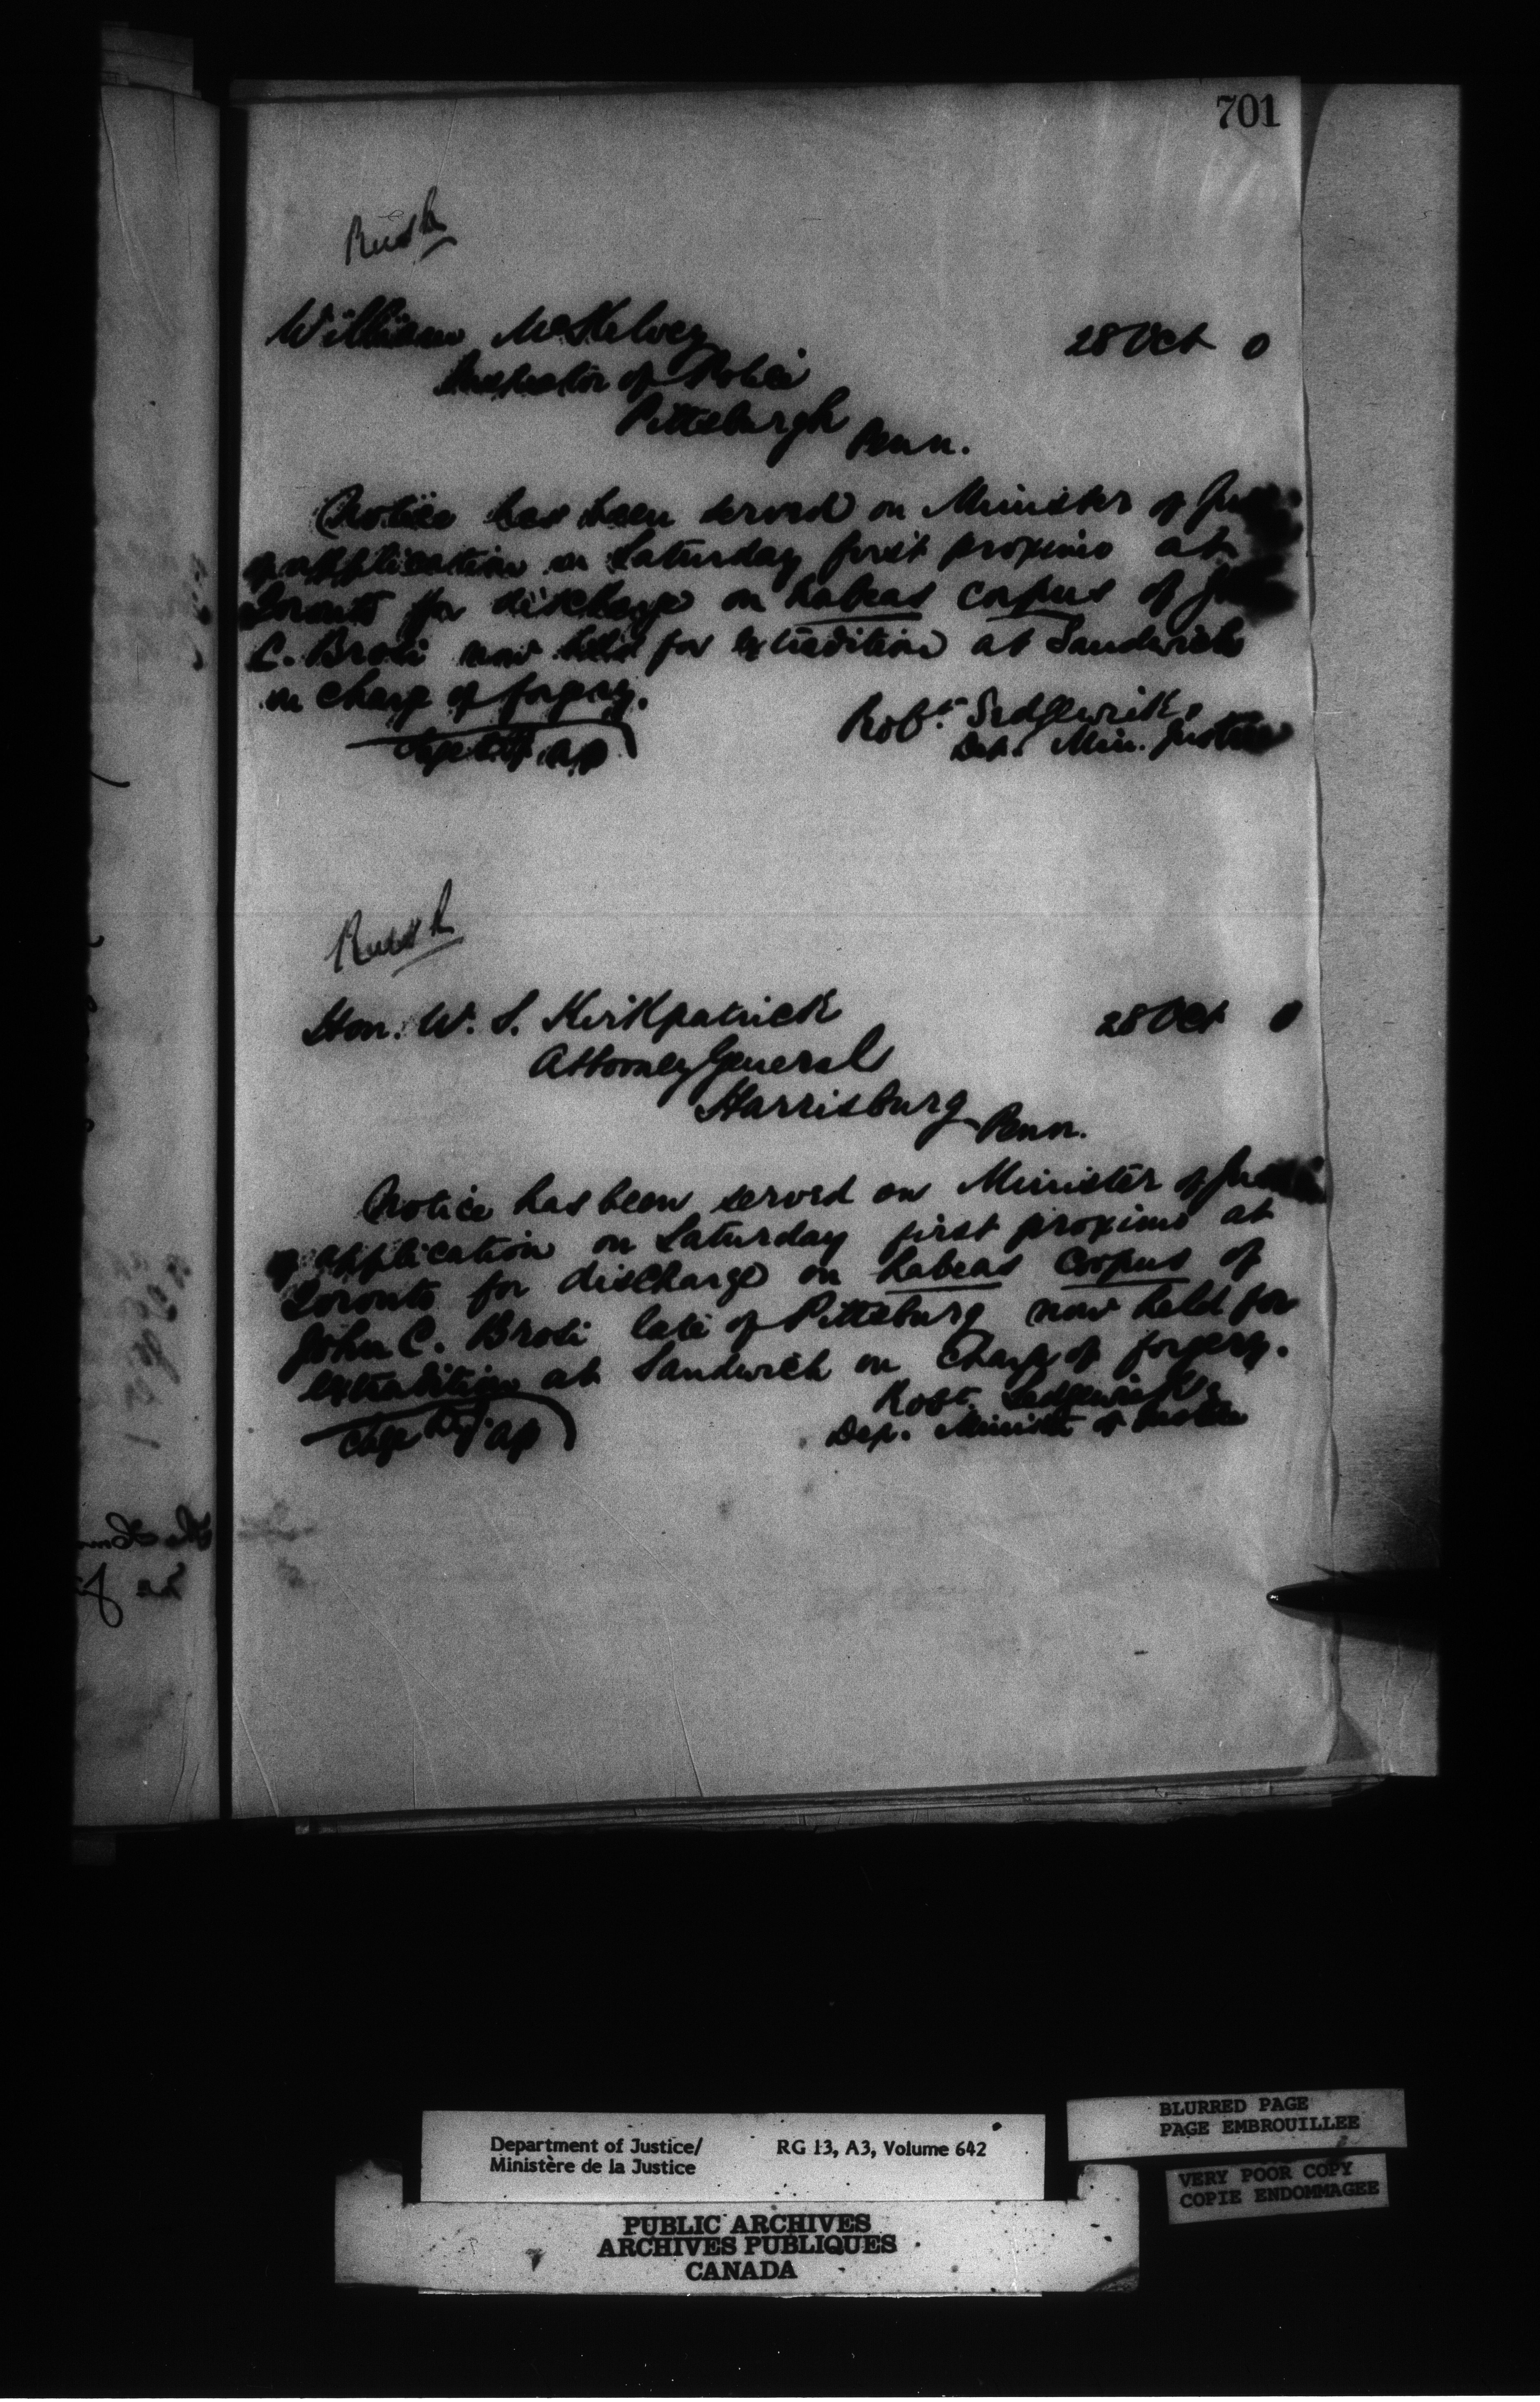 701
Rush
William McKelvey
28 Oct 0
Inspector of Police
Pittsburgh
Penn.
Notice has been served on Minister of
of application on Saturday first proximo at
Toronto for discharge on habeas corpus of
C. Brodi now held for extradition at Sandwich
on charge of forgery.
Robt. Sedgewick,
Dep. Min. Justice
Rush
Hon. W. S. Kirkpatrick
28 Oct 0
Attorney General
Harrisburg
Penn.
Notice has been served on Minister of
of application on Saturday first proximo at
Toronto for discharge on habeas corpus of
John C. Brodi late of Pittsburg now held for
extradition at Sandwich on charge of forgery.
Robt. Sedgewick,
Dep. Minister of Justice
BLURRED PAGE
PAGE EMBROUILLEE
Department of Justice/ RG 13, A3, Volume 642
Ministère de la Justice
VERY POOR COPY
COPIE ENDOMMAGEE
PUBLIC ARCHIVES
ARCHIVES PUBLIQUES
CANADA